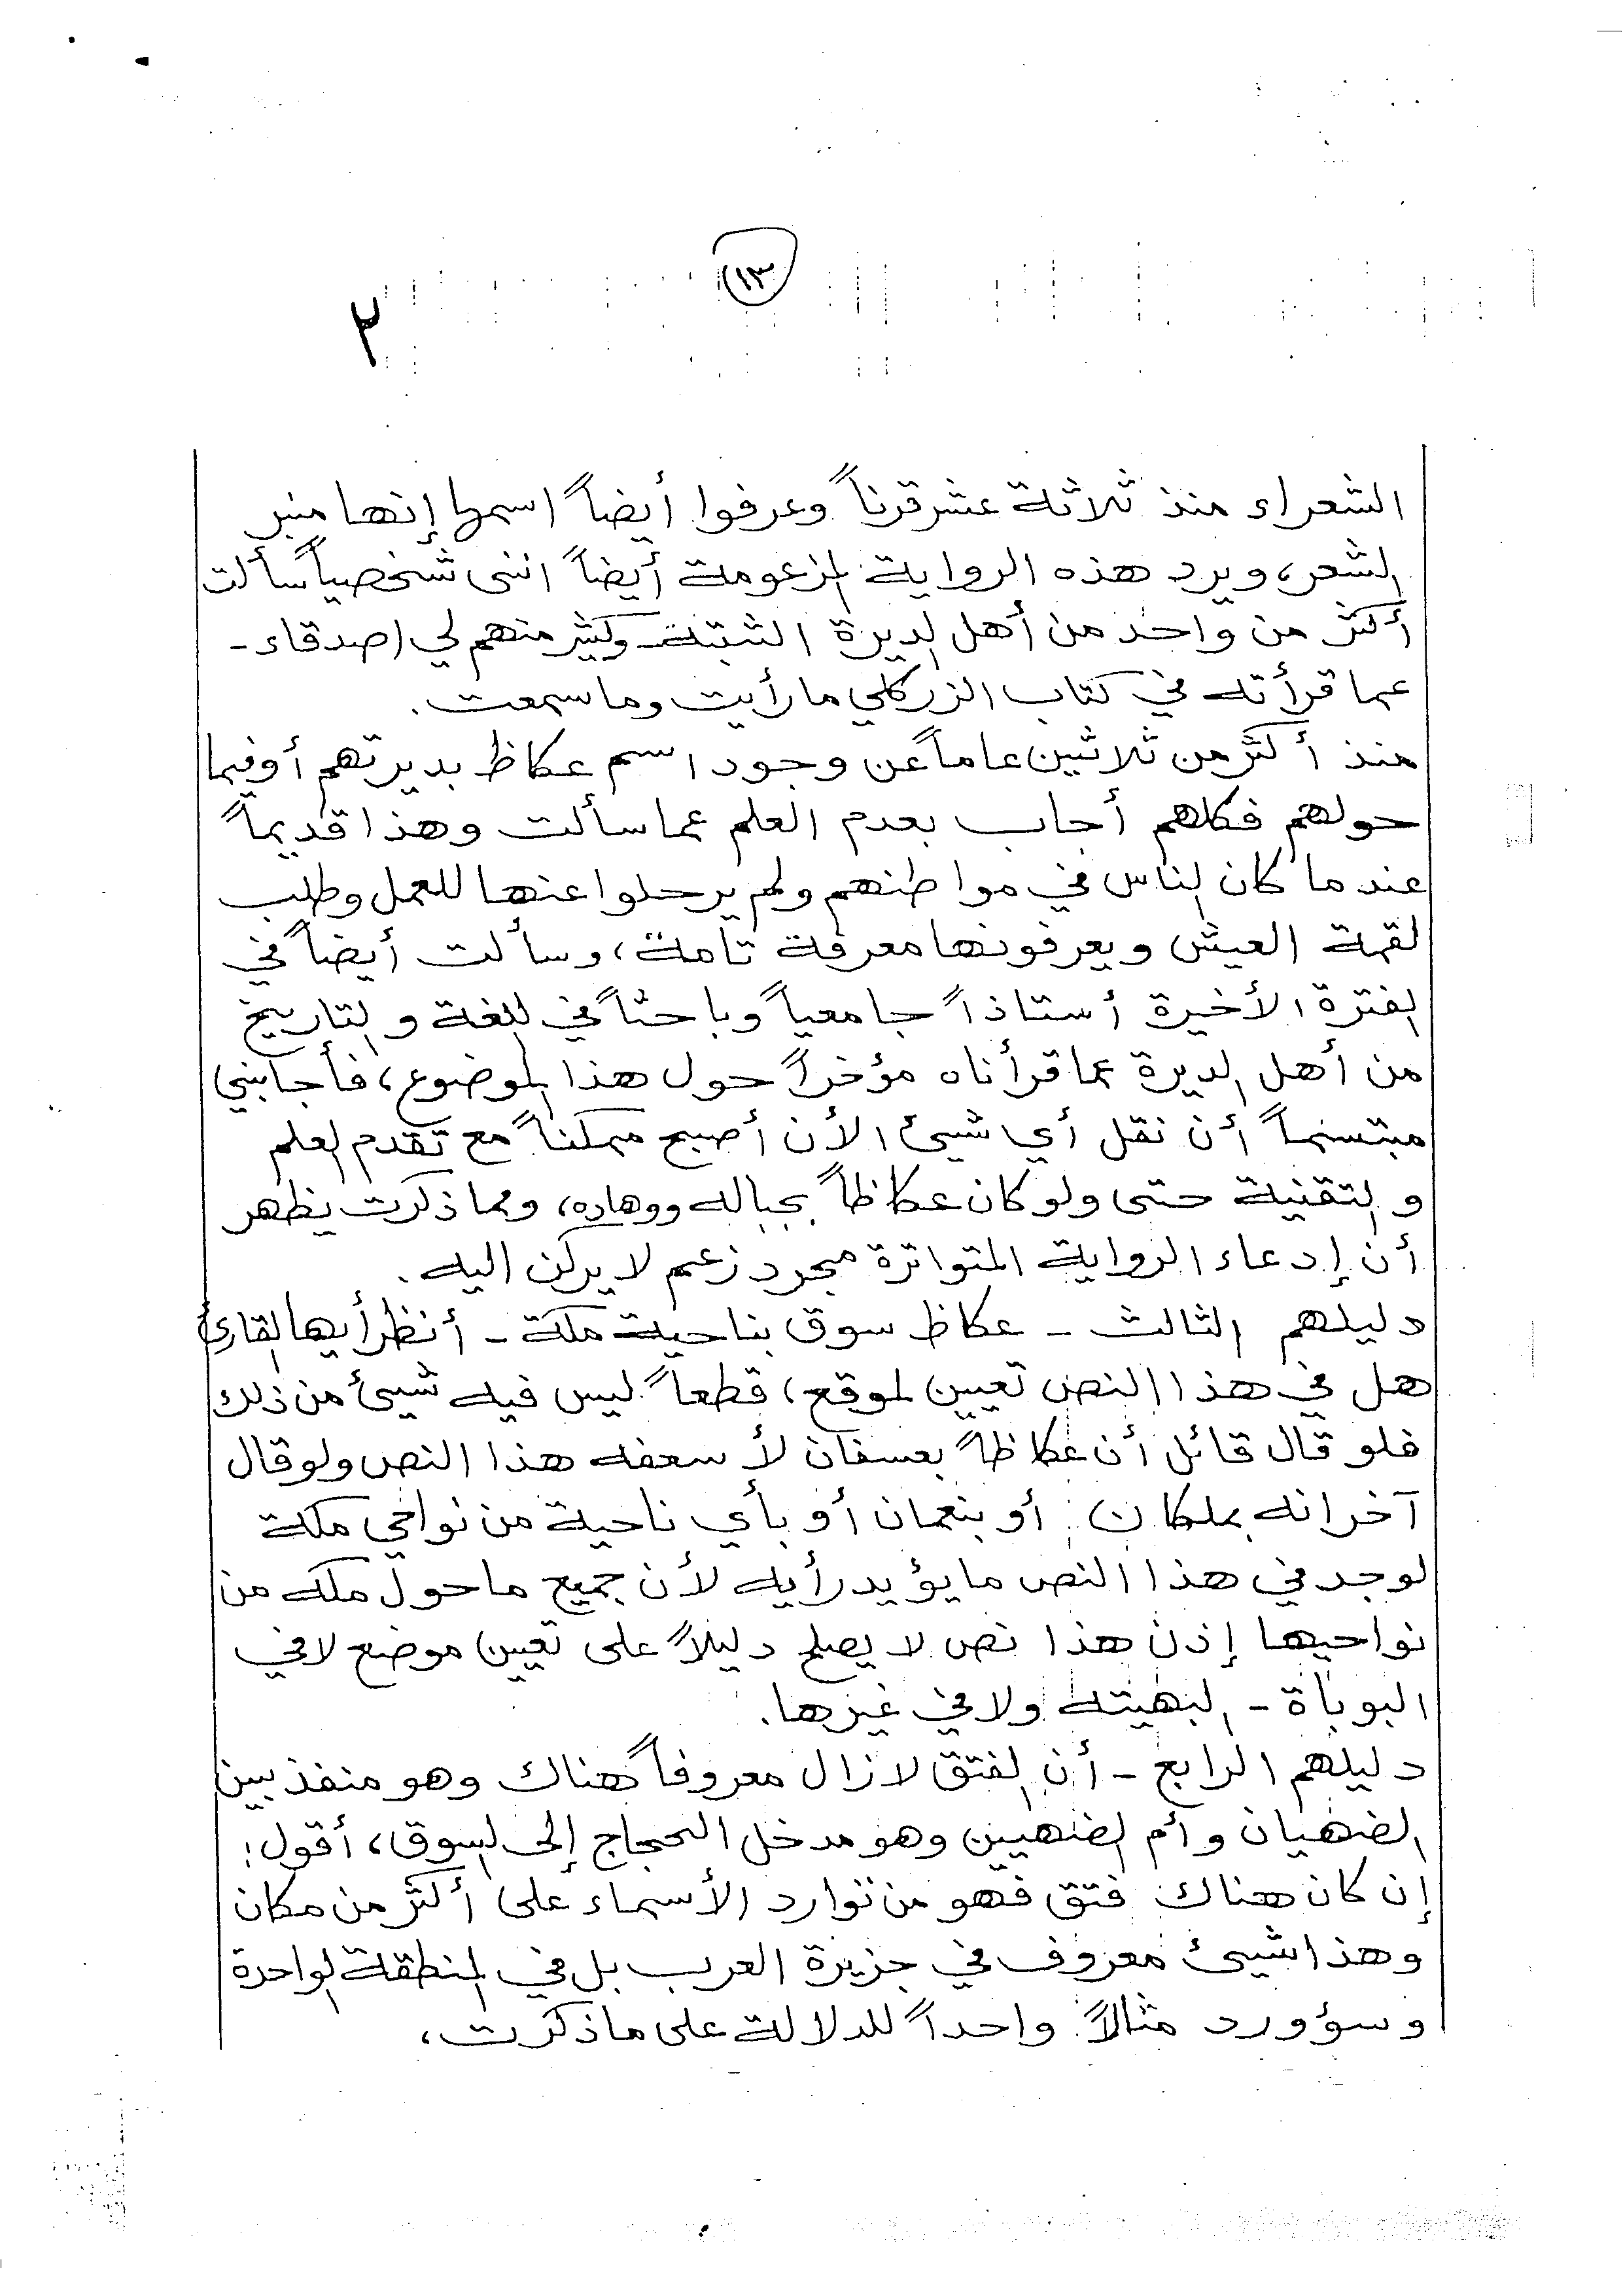 (١٣)
٢
الشعراء منذ ثلاثة عشر قرناً وعرفوا أيضاً اسمها إنها منبر
الشعر، ويرد هذه الرواية المزعومة أيضاً انني شخصياً سألت
أكثر من واحد من أهل الديرة الثبتة - وكثير منهم لي اصدقاء -
عما قرأته في كتاب الزركلي ما رأيت وما سمعت.
منذ أكثر من ثلاثين عاماً عن وجود اسم عكاظ بديرتهم أو فيما
حولهم فكلهم أجاب بعدم العلم عما سألت وهذا قديماً
عندما كان الناس في مواطنهم ولم يرحلوا عنها للعمل وطلب
لقمة العيش ويعرفونها معرفة تامة، وسألت أيضاً في
الفترة الأخيرة أستاذاً جامعياً وباحثاً في اللغة والتاريخ
من أهل الديرة عما قرأناه مؤخراً حول هذا الموضوع، فأجابني
مبتسماً أن نقل أي شيئ الأن أصبح ممكناً مع تقدم العلم
والتقنية حتى ولو كان عكاظاً بجباله ووهاده، ومما ذكرت يظهر
أن إدعاء الرواية المتواترة مجرد زعم لا يركن اليه.
دليلهم الثالث - عكاظ سوق بناحية مكة - أنظر أيها القارئ
هل في هذا النص تعيين لموقع، قطعاً ليس فيه شيئ من ذلك
فلو قال قائل أن عكاظاً بعسفان لأسعفه هذا النص ولو قال
آخر انه بملكان أو بنعمان أو بأي ناحية من نواحي مكة
لوجد في هذا النص ما يؤيد رأيه لأن جميع ما حول مكه من
نواحيها إذن هذا نص لا يصلح دليلاً على تعيين موضع لا في
البوباة - البهيته ولا في غيرها.
دليلهم الرابع - أن الفتق لازال معروفاً هناك وهو منفذ بين
الضهيان وأم الضهيين وهو مدخل الحجاج إلى السوق، أقول:
إن كان هناك فتق فهو من توارد الأسماء على أكثر من مكان
وهذا شيئ معروف في جزيرة العرب بل في المنطقة الواحدة
وسؤورد مثالاً واحداً للدلالة على ما ذكرت،